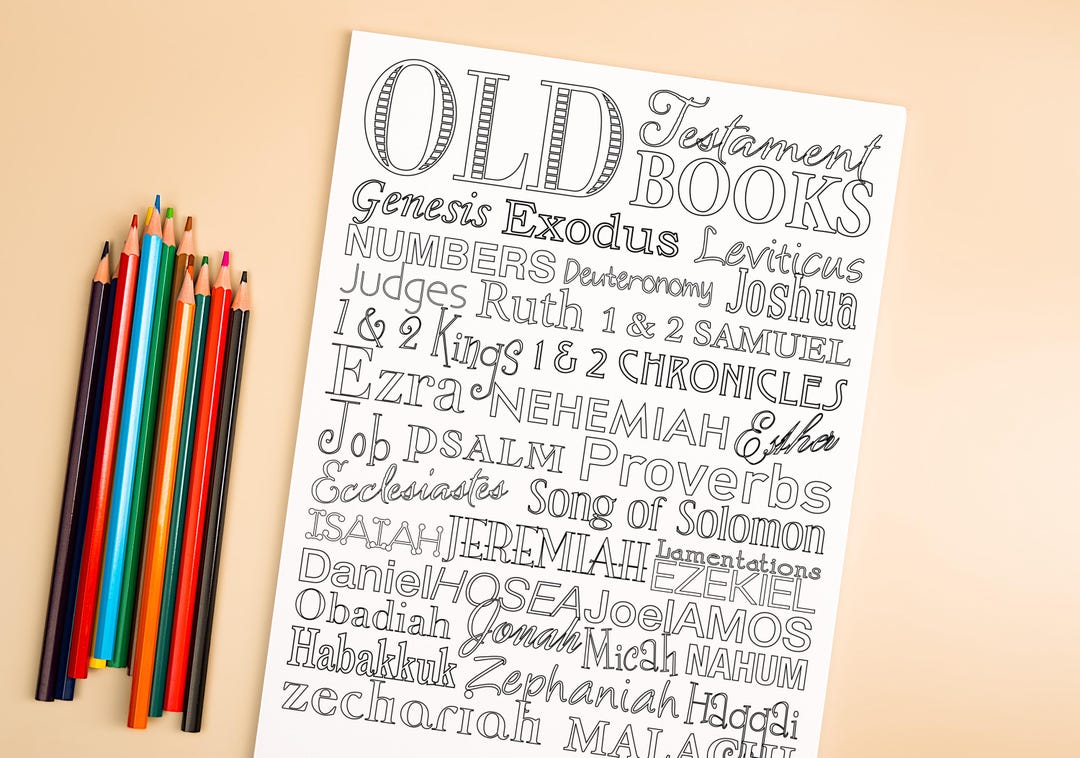 OLD Testament BOOKS
Genesis Exodus Leviticus
NUMBERS Deuteronomy Joshua
Judges Ruth 1 & 2 SAMUEL
1 & 2 Kings 1 & 2 CHRONICLES
Ezra NEHEMIAH Esther
Job PSALM Proverbs
Ecclesiastes Song of Solomon
ISAIAH JEREMIAH Lamentations
EZEKIEL
Daniel HOSEA Joel AMOS
Obadiah Jonah Micah NAHUM
Habakkuk Zephaniah Haggai
zechariah MALACHI